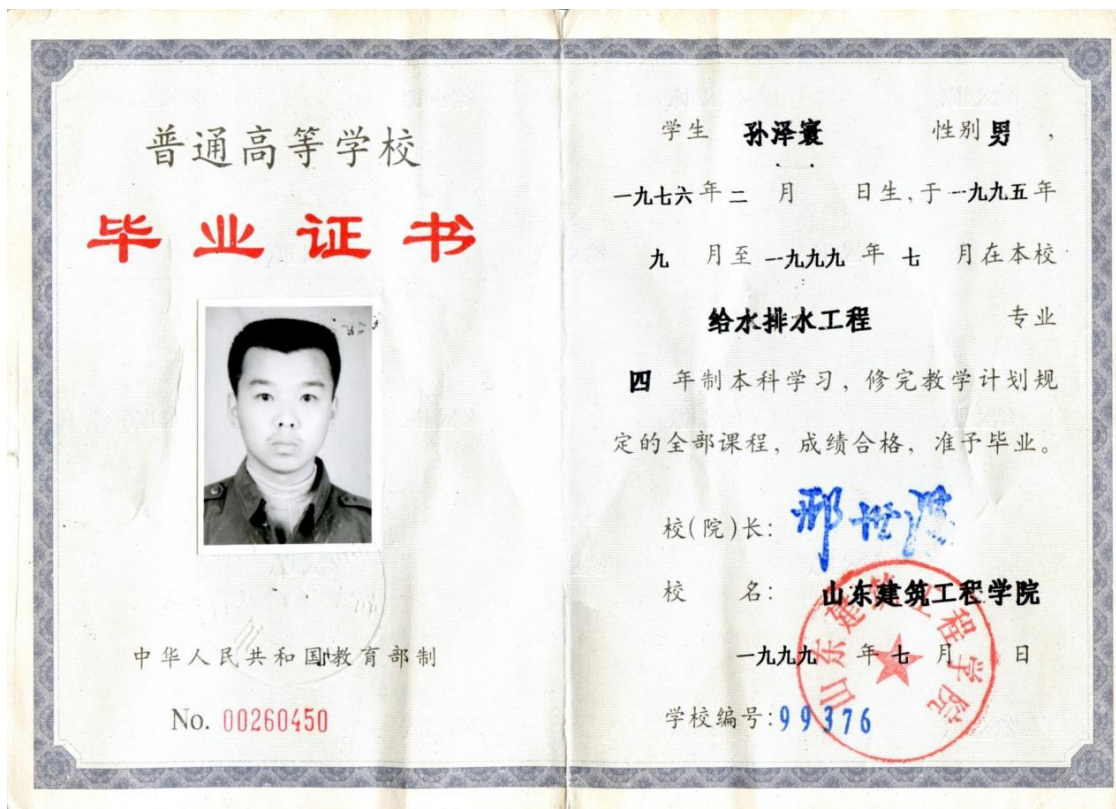 普通高等学校
毕业证书
中华人民共和国教育部制
No. 00260450
学生 孙泽寰 性别 男 ,
一九七六年 二 月 日生,于 一九九五年
九 月至 一九九九 年 七 月在本校
给水排水工程 专业
四 年制本科学习，修完教学计划规
定的全部课程，成绩合格，准予毕业。
校(院)长:
校 名: 山东建筑工程学院
一九九九 年 七 月 日
学校编号:99376
山东建筑工程学院